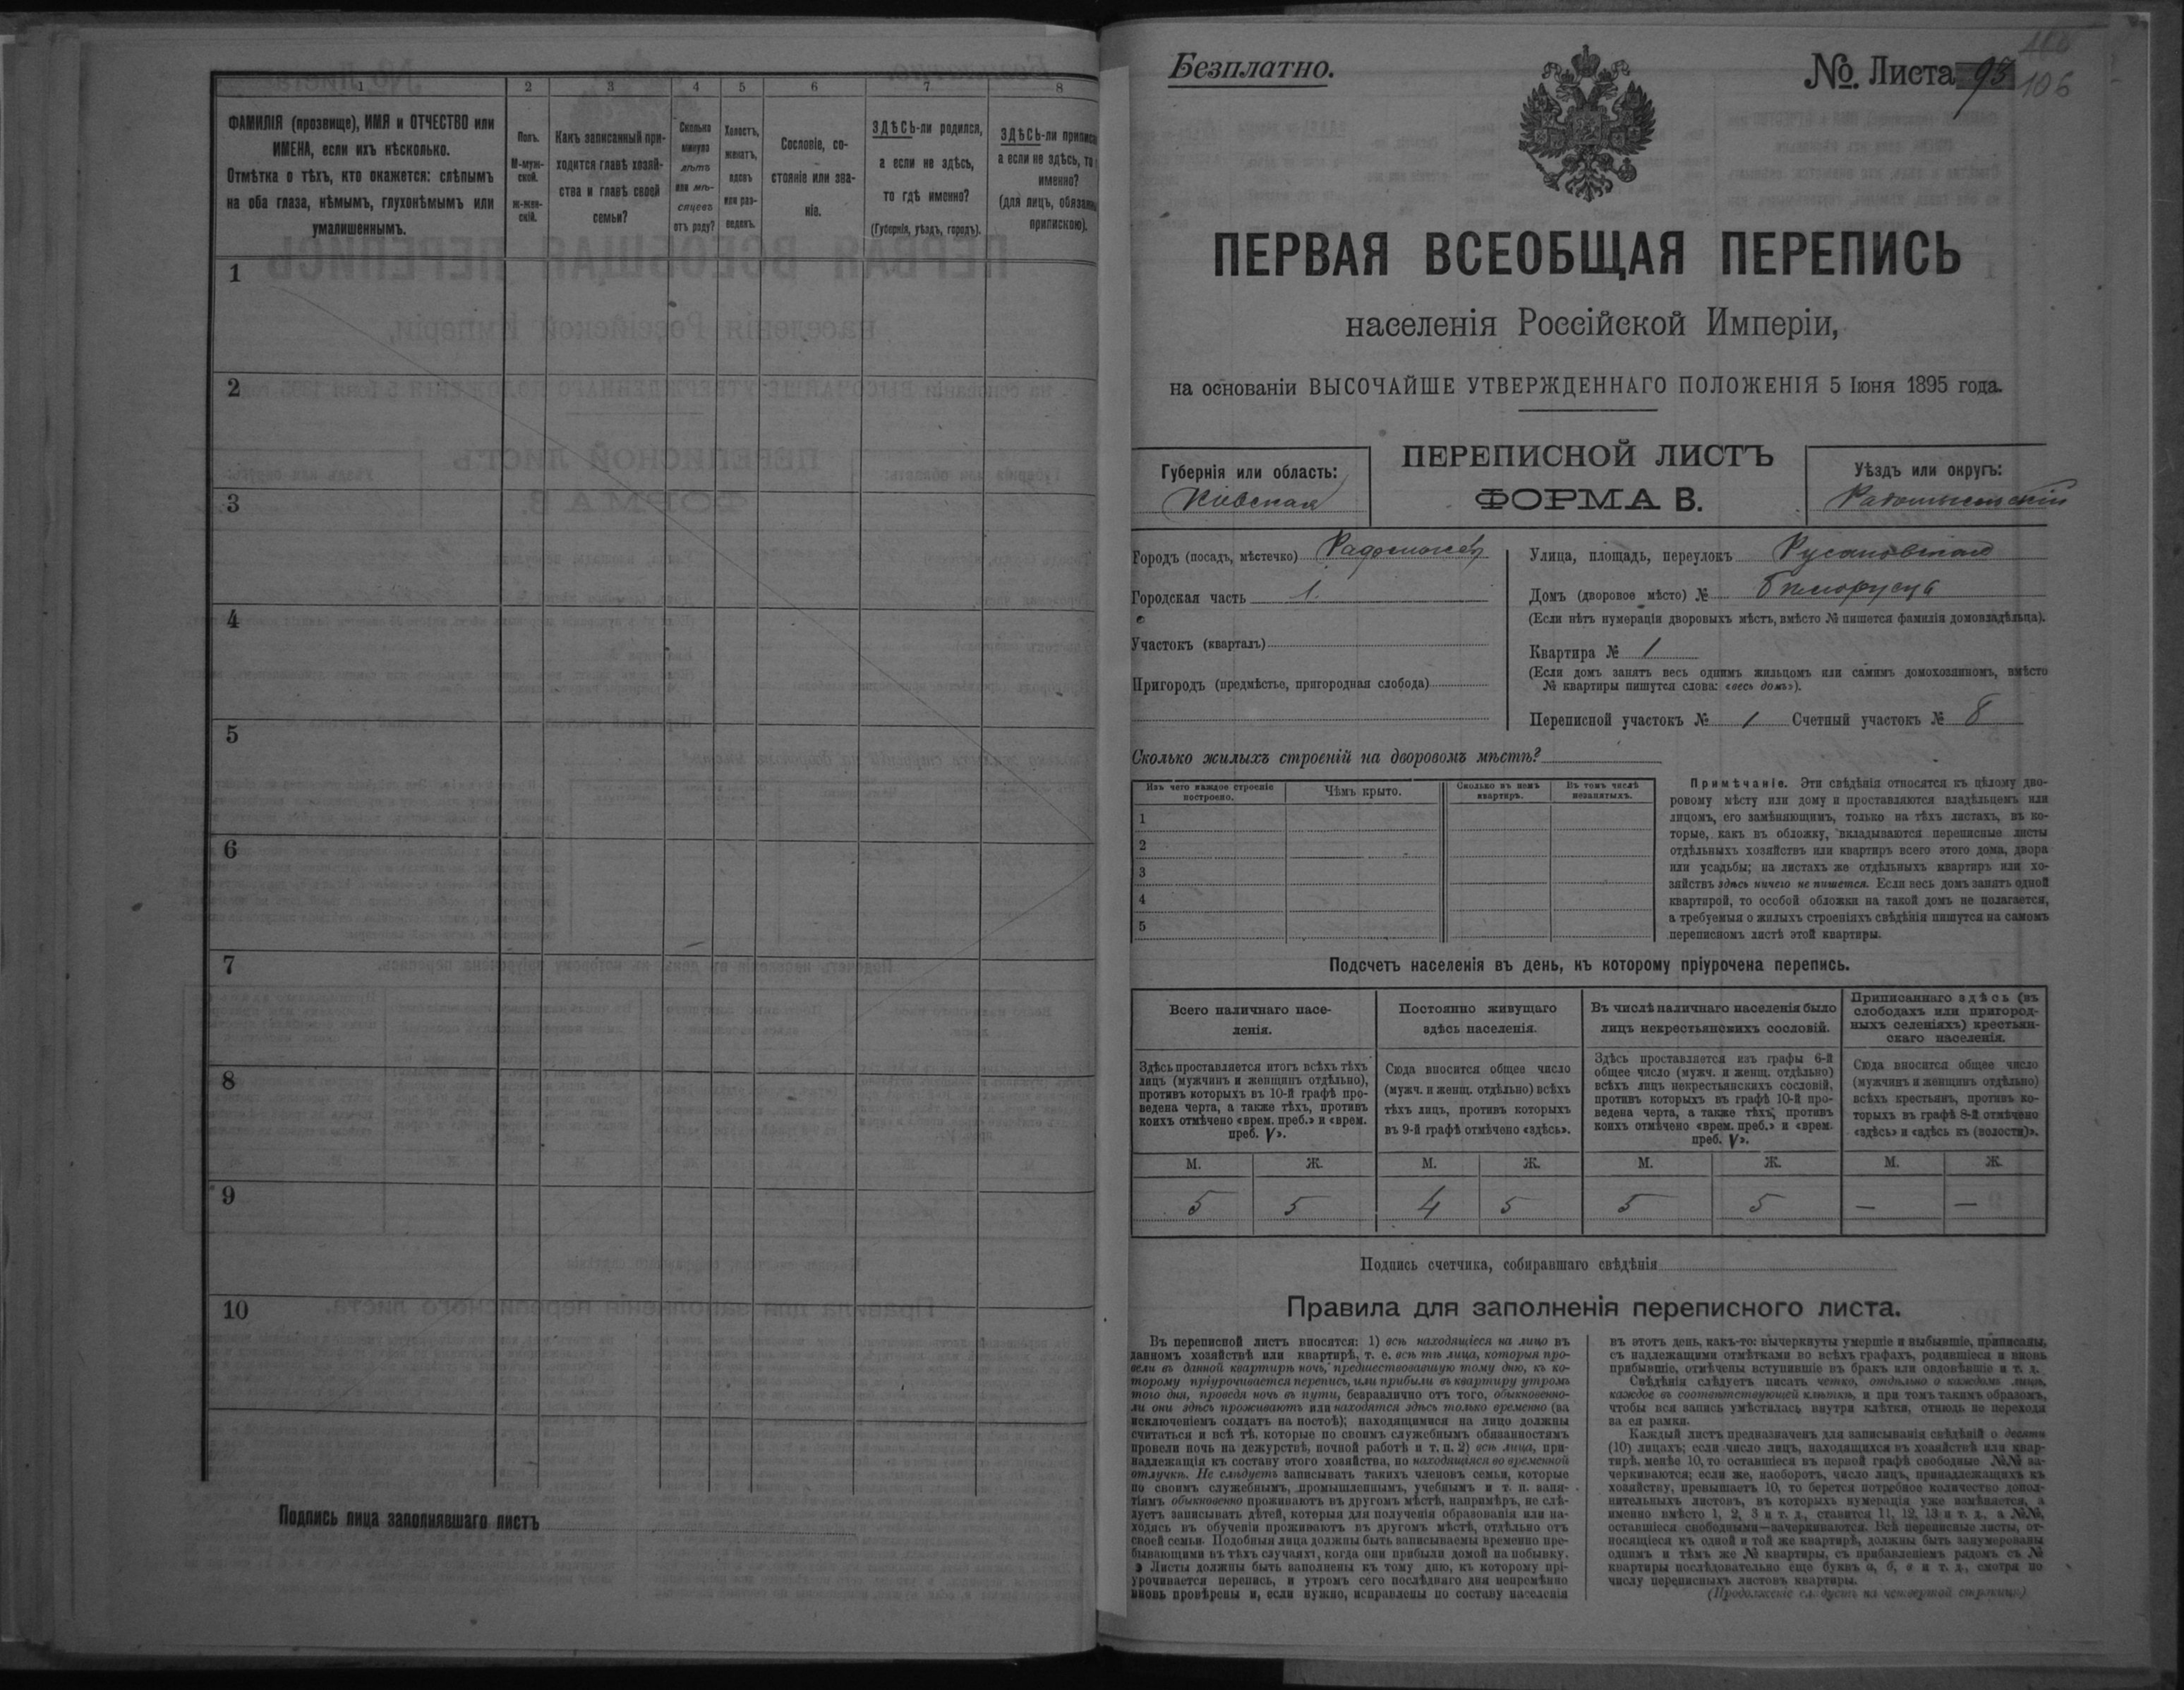 1 2 3 4 5 6 7 8
ФАМИЛІЯ (прозвище), ИМЯ и ОТЧЕСТВО или
ИМЕНА, если ихъ нѣсколько.
Отмѣтка о тѣхъ, кто окажется: слѣпымъ
на оба глаза, нѣмымъ, глухонѣмымъ или
умалишеннымъ.
Полъ.
М-муж-
ской.
Ж-жен-
скій.
Какъ записанный при-
ходится главѣ хозяй-
ства и главѣ своей
семьи?
Сколько
минуло
лѣтъ
или мѣ-
сяцевъ
отъ роду?
Холостъ,
женатъ,
вдовъ
или раз-
веденъ.
Сословіе, со-
стояніе или зва-
ніе.
ЗДѢСЬ-ли родился,
а если не здѣсь,
то гдѣ именно?
(Губернія, уѣздъ, городъ).
ЗДѢСЬ-ли
а если не здѣсь, то
именно?
(для лицъ,
припискою).
1
2
3
4
5
6
7
8
9
10
Подпись лица заполнявшаго листъ
Безплатно.
№. Листа 93
106
ПЕРВАЯ ВСЕОБЩАЯ ПЕРЕПИСЬ
населенія Россійской Имперіи,
на основаніи ВЫСОЧАЙШЕ УТВЕРЖДЕННАГО ПОЛОЖЕНІЯ 5 Іюня 1895 года.
Губернія или область:
Кіевская
ПЕРЕПИСНОЙ ЛИСТЪ
ФОРМА В.
Уѣздъ или округъ:
Радомысльскій
Городъ (посадъ, мѣстечко) Радомысль
Городская часть 1.
Участокъ (кварталъ)
Пригородъ (предмѣстье, пригородная слобода)
Улица, площадь, переулокъ Русановская
Домъ (дворовое мѣсто) №
(Если нѣтъ нумераціи дворовыхъ мѣстъ, вмѣсто № пишется фамилія домовладѣльца).
Квартира № 1
(Если домъ занятъ весь однимъ жильцомъ или самимъ домохозяиномъ, вмѣсто
№ квартиры пишутся слова: «весь домъ»).
Переписной участокъ № 1 Счетный участокъ № 8
Сколько жилыхъ строеній на дворовомъ мѣстѣ?
Изъ чего каждое строеніе
построено.
Чѣмъ крыто.
Сколько въ немъ
квартиръ.
Въ томъ числѣ
незанятыхъ.
1
2
3
4
5
Примѣчаніе. Эти свѣдѣнія относятся къ цѣлому дво-
ровому мѣсту или дому и проставляются владѣльцемъ или
лицомъ, его замѣняющимъ, только на тѣхъ листахъ, въ ко-
торые, какъ въ обложку, вкладываются переписные листы
отдѣльныхъ хозяйствъ или квартиръ всего этого дома, двора
или усадьбы; на листахъ же отдѣльныхъ квартиръ или хо-
зяйствъ здѣсь ничего не пишется. Если весь домъ занятъ одной
квартирой, то особой обложки на такой домъ не полагается,
а требуемыя о жилыхъ строеніяхъ свѣдѣнія пишутся на самомъ
переписномъ листѣ этой квартиры.
Подсчетъ населенія въ день, къ которому пріурочена перепись.
Всего наличнаго насе-
ленія.
Здѣсь проставляется итогъ всѣхъ тѣхъ
лицъ (мужчинъ и женщинъ отдѣльно),
противъ которыхъ въ 10-й графѣ про-
ведена черта, а также тѣхъ, противъ
коихъ отмѣчено «врем. преб.» и «врем.
преб. V».
Постоянно живущаго
здѣсь населенія.
Сюда вносится общее число
(мужч. и женщ. отдѣльно) всѣхъ
тѣхъ лицъ, противъ которыхъ
въ 9-й графѣ отмѣчено «здѣсь».
Въ числѣ наличнаго населенія было
лицъ некрестьянскихъ сословій.
Здѣсь проставляется изъ графы 6-й
общее число (мужч. и женщ. отдѣльно)
всѣхъ лицъ некрестьянскихъ сословій,
противъ которыхъ въ графѣ 10-й про-
ведена черта, а также тѣхъ, противъ
коихъ отмѣчено «врем. преб.» и «врем.
преб. V».
Приписаннаго здѣсь (въ
слободахъ или пригород-
ныхъ селеніяхъ) крестьян-
скаго населенія.
Сюда вносится общее число
(мужчинъ и женщинъ отдѣльно)
всѣхъ крестьянъ, противъ ко-
торыхъ въ графѣ 8-й отмѣчено
«здѣсь» и «здѣсь къ (волости)».
М. Ж. М. Ж. М. Ж. М. Ж.
5 5 4 5 5 5 — —
Подпись счетчика, собиравшаго свѣдѣнія
Правила для заполненія переписного листа.
Въ переписной листъ вносятся: 1) всѣ находящіеся на лицо въ
данномъ хозяйствѣ или квартирѣ, т. е. всѣ тѣ лица, которыя про-
вели въ данной квартирѣ ночь, предшествовавшую тому дню, къ ко-
торому пріурочивается перепись, или прибыли въ квартиру утромъ
того дня, проведя ночь въ пути, безразлично отъ того, обыкновенно-
ли они здѣсь проживаютъ или находятся здѣсь только временно (за
исключеніемъ солдатъ на постоѣ); находящимися на лицо должны
считаться и всѣ тѣ, которые по своимъ служебнымъ обязанностямъ
провели ночь на дежурствѣ, ночной работѣ и т. п. 2) всѣ лица, при-
надлежащія къ составу этого хозяйства, но находящіяся во временной
отлучкѣ. Не слѣдуетъ записывать такихъ членовъ семьи, которые
по своимъ служебнымъ, промышленнымъ, учебнымъ и т. п. заня-
тіямъ обыкновенно проживаютъ въ другомъ мѣстѣ, напримѣръ, не слѣ-
дуетъ записывать дѣтей, которыя для полученія образованія или на-
ходясь въ обученіи проживаютъ въ другомъ мѣстѣ, отдѣльно отъ
своей семьи. Подобныя лица должны быть записываемы временно пре-
бывающими въ тѣхъ случаяхъ, когда они прибыли домой на побывку.
Листы должны быть заполнены къ тому дню, къ которому прі-
урочивается перепись, и утромъ сего послѣдняго дня непремѣнно
вновь провѣрены и, если нужно, исправлены по составу населенія
въ этотъ день, какъ-то: вычеркнуты умершіе и выбывшіе, приписаны,
съ надлежащими отмѣтками во всѣхъ графахъ, родившіеся и вновь
прибывшіе, отмѣчены вступившіе въ бракъ или овдовѣвшіе и т. д.
Свѣдѣнія слѣдуетъ писать четко, отдѣльно о каждомъ лицѣ,
каждое въ соотвѣтствующей клѣткѣ, и при томъ такимъ образомъ,
чтобы вся запись умѣстилась внутри клѣтки, отнюдь не переходя
за ея рамки.
Каждый листъ предназначенъ для записыванія свѣдѣній о десяти
(10) лицахъ; если число лицъ, находящихся въ хозяйствѣ или квар-
тирѣ, менѣе 10, то оставшіеся въ первой графѣ свободные №№ за-
черкиваются; если же, наоборотъ, число лицъ, принадлежащихъ къ
хозяйству, превышаетъ 10, то берется потребное количество допол-
нительныхъ листовъ, въ которыхъ нумерація уже измѣняется, а
именно вмѣсто 1, 2, 3 и т. д., ставится 11, 12, 13 и т. д., а №№,
оставшіеся свободными—зачеркиваются. Всѣ переписные листы, от-
носящіеся къ одной и той же квартирѣ, должны быть занумерованы
однимъ и тѣмъ же № квартиры, съ прибавленіемъ рядомъ съ №
квартиры послѣдовательно еще буквъ а, б, в и т. д., смотря по
числу переписныхъ листовъ квартиры.
(Продолженіе слѣдуетъ на четвертой страницѣ)